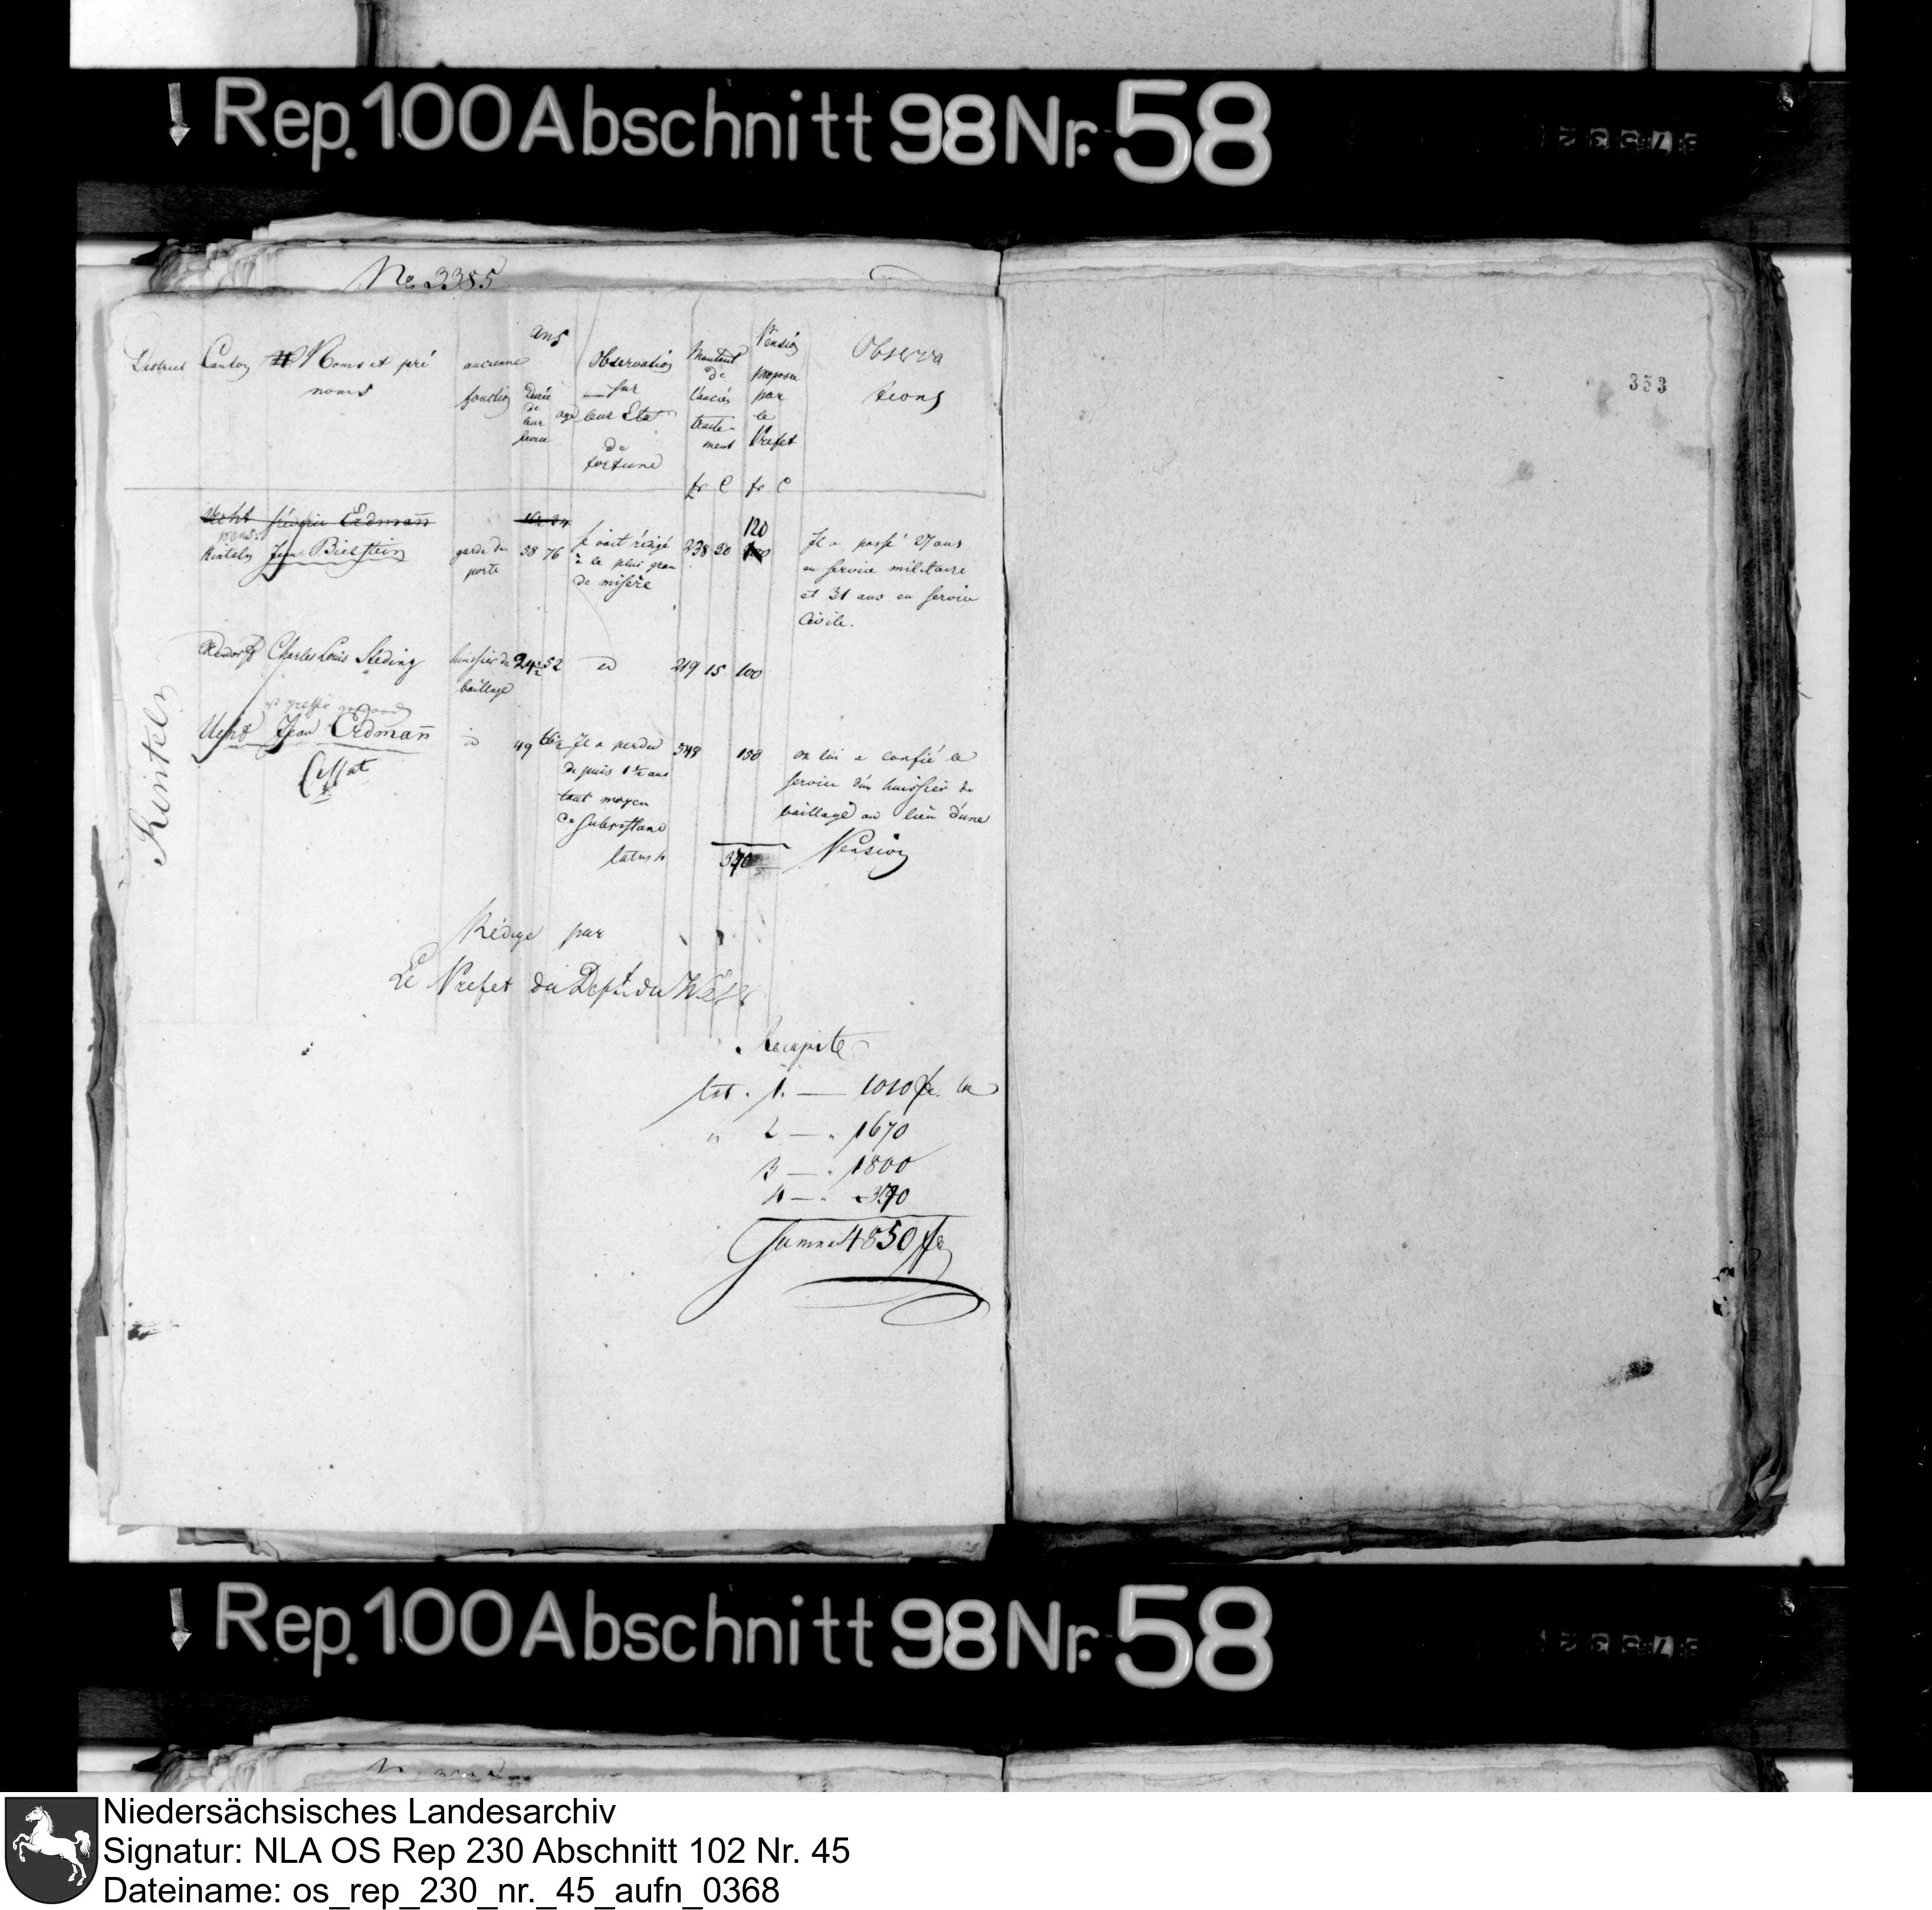 Rep. 100 Abschnitt 98 Nr. 58
No 3385
353
District Canton Noms et pré
noms
ancienne
fonction
ans
Durée
de
leur
service
age
Observation
sur
leur Etat
de
fortune
Montant
de
l'ancien
traite-
ment
fr C
Pension
proposée
par
le
Prefet
fr C
Observa
tions
Rinteln
Ucht Fréderic Erdmañ
Rinteln Jean Bielstein
garde de
porte
58 76
Se voit rédigé
à la plus gran
de misère
238 50
120
Il a passé 27 ans
en service militaire
et 31 ans en service
Civile.
Charles Louis Steding
huissier de
baillage
24½ 52
id
219 15 100
Ucht Jean Erdmañ
id
49 66½
Il a perdu
depuis 1½ ans
tout moyen
de subsistance
548
150
on lui a confié le
service d'un huissier de
baillage au lieu d'une
Pension
Cessat
latus 4
370
Rédigé par
Le Prefet du Dept. du Weser
Recapite
lat. 1. — 1010 fr.
" 2 — " 1670
3 — " 1800
4 — " 370
Summa 4850 fr
Rep. 100 Abschnitt 98 Nr. 58
Niedersächsisches Landesarchiv
Signatur: NLA OS Rep 230 Abschnitt 102 Nr. 45
Dateiname: os_rep_230_nr._45_aufn_0368